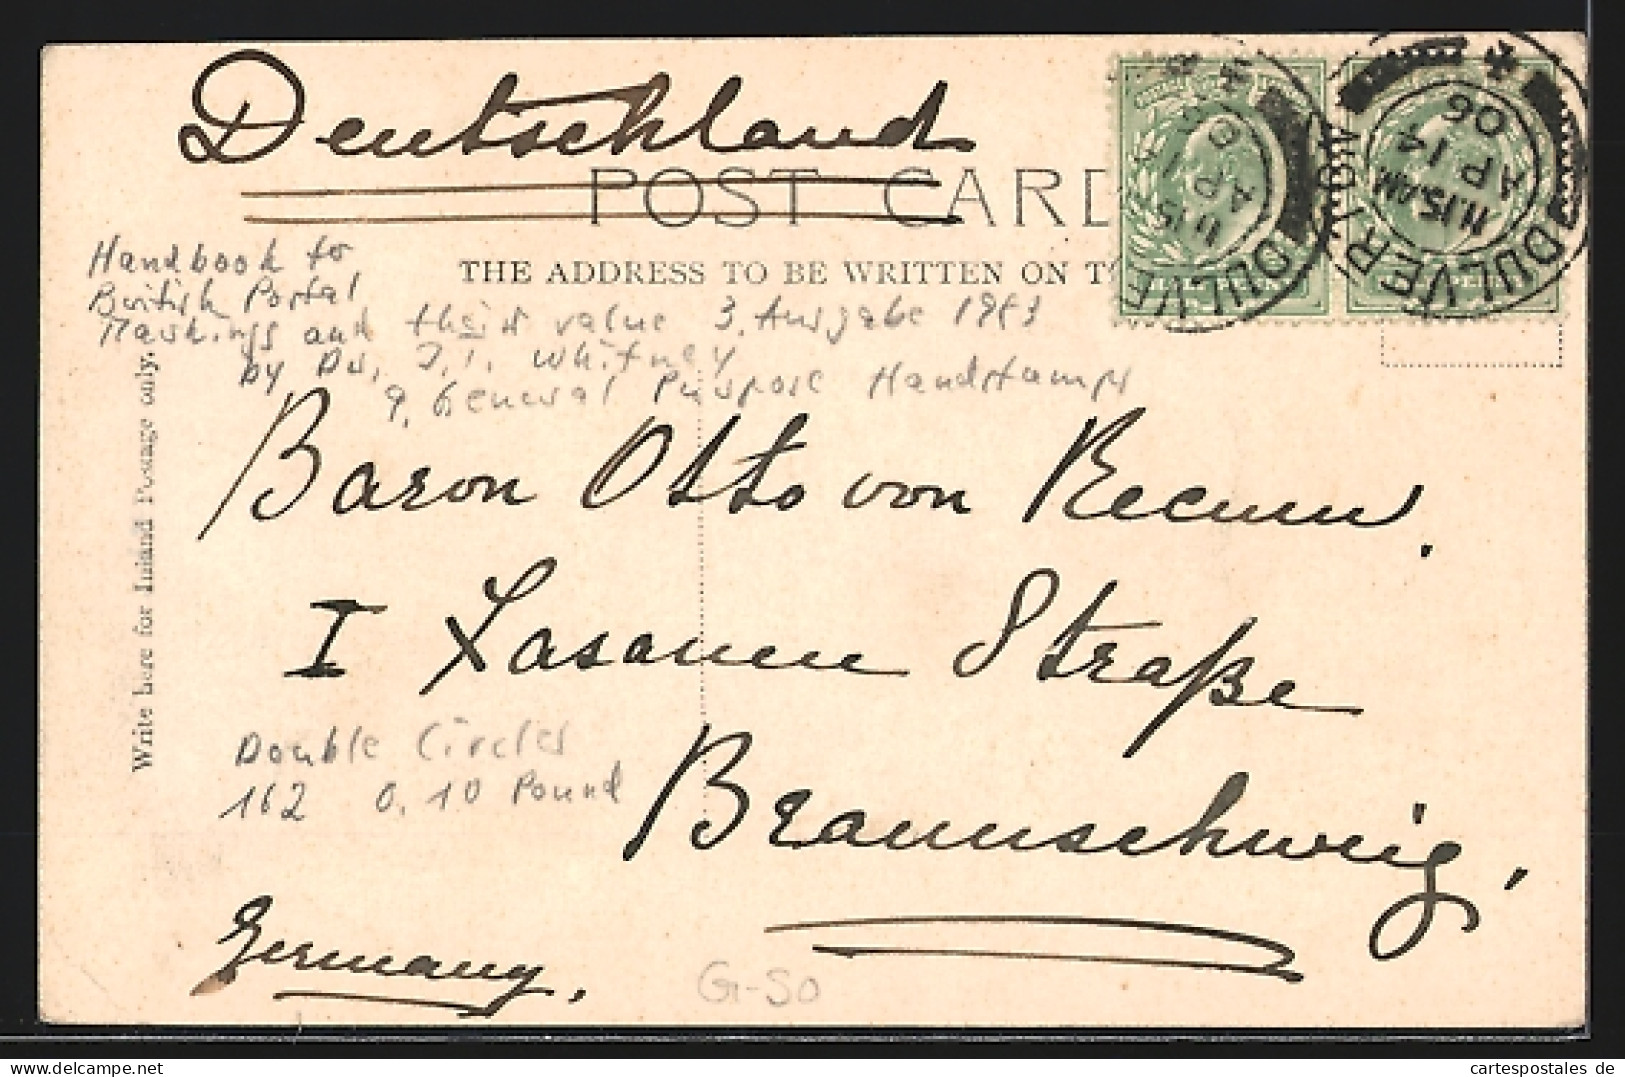 Deutschland
POST CARD
THE ADDRESS TO BE WRITTEN ON
DULVERTON
11.15 AM
AP 14
06
DULVE
11.15
AP 14
0
Handbook to
British Postal
Markings and their value 3. Ausgabe 1983
by Dr. J.T. Whitney
9. General Purpose Handstamps
Baron Otto von Recum.
I Fasanen Straße
Double Circles
162 0.10 Pound
Braunschweig,
Germany.
G-SO
Write here for Inland Postage only.
cartespostales de